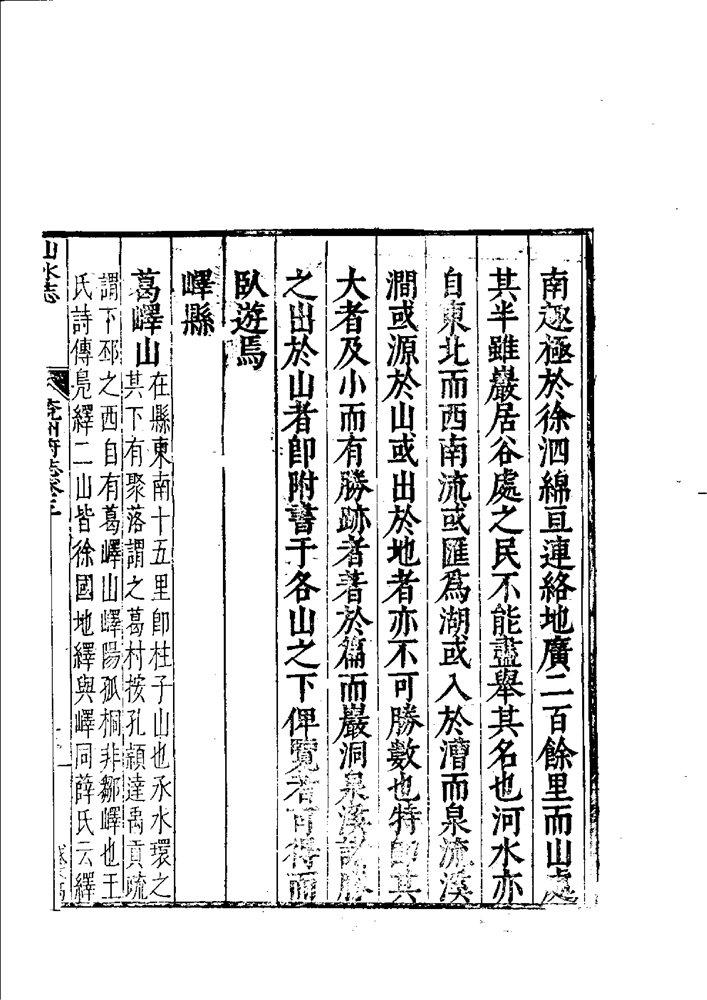 南趣極於徐泗綿亘連絡地廣二百餘里而山處
其半雖巖居谷處之民不能盡舉其名也河水亦
自東北而西南流或匯爲湖或入於漕而泉流溪
澗或源於山或出於地者亦不可勝數也特即其
大者及小而有勝跡者著於篇而巖洞泉溪諸勝
之出於山者即附書于各山之下俾覽者可得而
臥遊焉
嶧縣
葛嶧山在縣東南十五里即柱子山也氶水環之
其下有聚落謂之葛村按孔穎達禹貢疏
謂下邳之西自有葛嶧山嶧陽孤桐非鄒嶧也王
氏詩傳鳧繹二山皆徐國地繹與嶧同薛氏云繹
山水志
兗州府志卷三